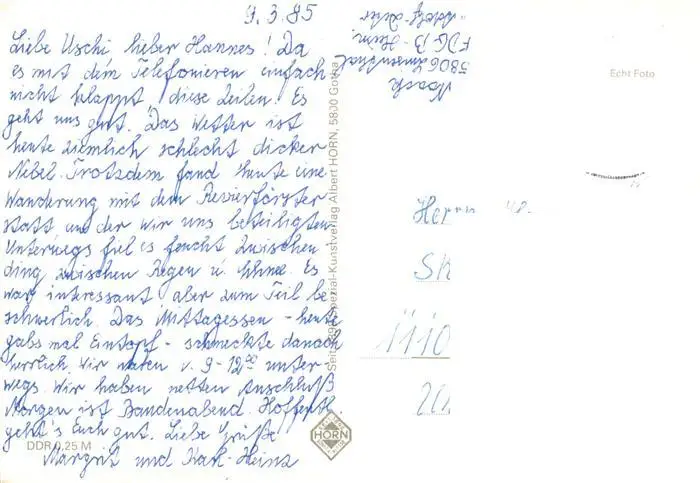 9.3.85
Liebe Uschi lieber Hannes! Da
es mit dem Telefonieren einfach
nicht klappt, diese Zeilen. Es
geht uns gut. Das Wetter ist
heute ziemlich schlecht dicker
Nebel. Trotzdem fand heute eine
Wanderung mit dem Revierförster
statt an der wir uns beteiligten
Unterwegs fiel es feucht zwischen
ding zwischen Regen u. Schnee. Es
war interessant aber zum Teil be
schwerlich. Das Mittagessen - heute
gabs mal Eintopf - schmeckte danach
herrlich. Wir waren v. 9-12,00 unter-
wegs. Wir haben netten Anschluß
Morgen ist Bandenabend. Hoffentl.
geht's Euch gut. Liebe Grüße
Margrit und Karl-Heinz
DDR 0,25 M
Spezial-Kunstverlag Albert HORN, 5800 Gotha
HORN
5806
FDGB-Heim
Echt Foto
Herr
1110